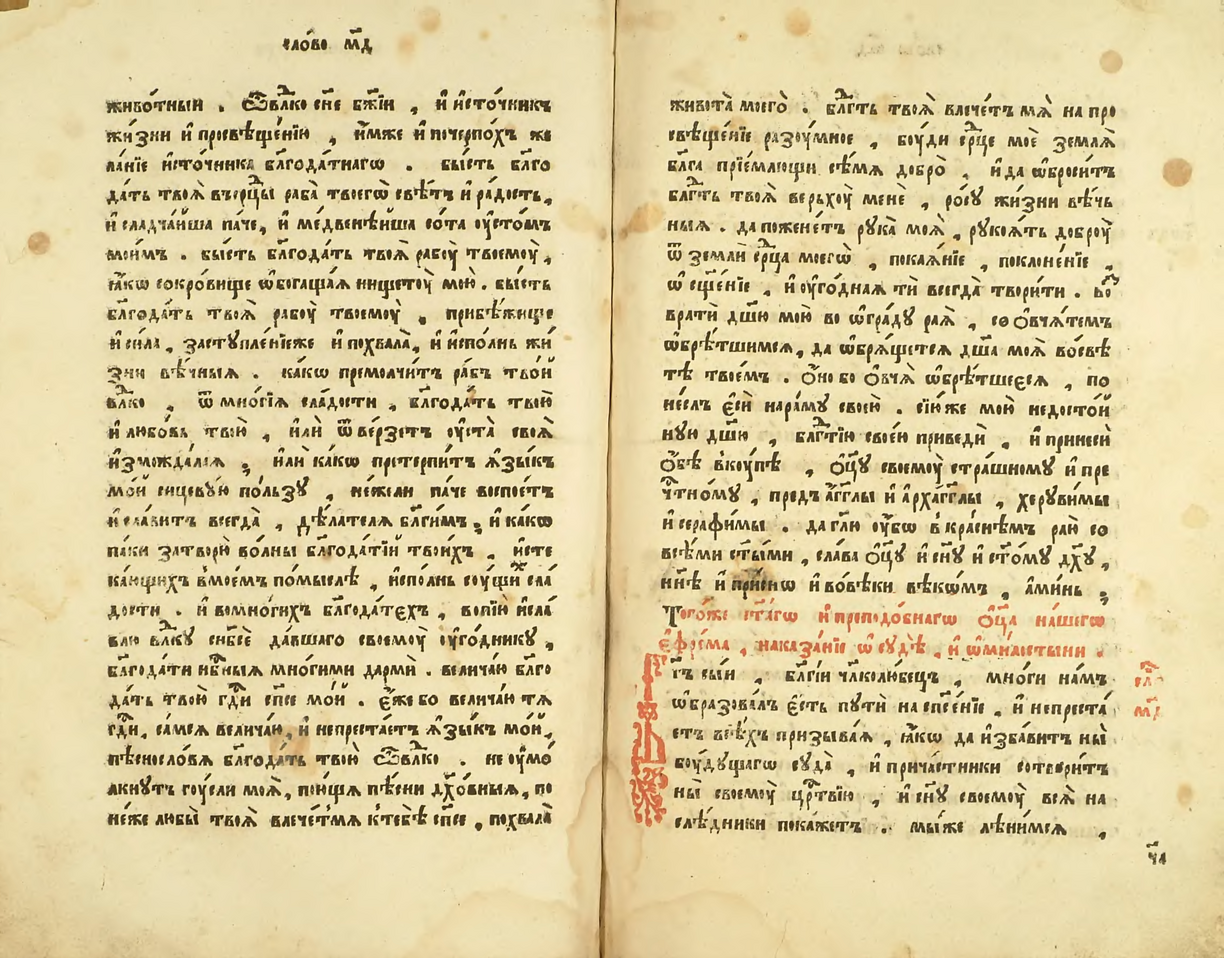 сло́во м҃д
живо́тныи . Ѽвл҃ко сн҃е бж҃їи , и҆ и҆сто́чникъ
жи́зни и҆ просвѣще́нїю , и҆́мже и҆ почерпо́хъ же
ла́нїе и҆сто́чника бл҃года́тнагѡ . бы́сть бл҃го
да́ть твоѧ̀ въсрⷣцы раба̀ твоегѡ̀ свѣ́тъ и҆ ра́дость,
и҆ сладча́йша па́че, и҆ ме́двенѣйша со́та ᲂу҆сто́мъ
мои́мъ . бы́сть бл҃года́ть твоѧ̀ рабᲂу̀ твоемᲂу̀ ,
ꙗ҆́кѡ сокро́вище ѡ҆богаща́ѧ нищетᲂу̀ мою̀ . бы́сть
бл҃года́ть твоѧ̀ рабᲂу̀ твоемᲂу̀ , прибѣ́жище
и҆ си́ла , застꙋпле́нїеже и҆ похвала̀, и҆ и҆спо́лнь жи
зни вѣ́чныѧ . ка́кѡ премолчи́тъ ра́бъ тво́й
вл҃ко , ѿ мно́гїѧ сла́дости , бл҃года́ть твою̀
и҆ любо́вь твою̀ , и҆лѝ ѿве́рзетъ ᲂу҆ста̀ своѧ̀
и҆зможда́лаѧ ; и҆лѝ ка́кѡ претерпи́тъ ѧ҆зы́къ
мо́й сицевꙋ́ю по́льзꙋ , не́жели па́че воспое́тъ
и҆ сла́витъ всегда̀ , дѣ́лателѧ бл҃ги́мъ ; и҆ ка́кѡ
па́ки затворю̀ во́лны бл҃года́тїй твои́хъ , и҆сте
ка́ющихъ вмое́мъ по́мыслѣ , и҆спо́лнь сᲂу́щихъ сла́
дости . и҆ вомно́гихъ бл҃года́тєхъ , вопїю̀ и҆сла́
влю вл҃кꙋ снб҃се́ да́вшаго своемᲂу̀ ᲂу҆го́дникꙋ ,
бл҃года́ти нбⷭ҇ныѧ мно́гими дармѝ . велича́ю бл҃го
да́ть твою̀ гдⷭ҇и сп҃се мо́й . є҆́же бо велича́ю тѧ
гдⷭ҇и, са́мсѧ велича́ю, и҆ непреста́етъ ѧ҆зы́къ мо́й,
пѣсносло́вѧ бл҃года́ть твою̀ Ѽвл҃ко . не ᲂу҆мо́
лкнꙋтъ гᲂу́сли моѧ̀ , пою́щѧ пѣ́сни дх҃о́вныѧ , по
не́же любы̀ твоѧ̀ влече́тмѧ ктебѣ̀ сп҃се , похвала̀
живота̀ моего̀ . бл҃гⷣть твоѧ̀ влече́тъ мѧ̀ на про
свѣще́нїе разᲂу́мное , бᲂу́ди срⷣце моѐ землѧ̀
бл҃га прїе́млющи сѣ́мѧ добро̀ , и҆ да ѡ҆броси́тъ
бл҃гⷣть твоѧ̀ верьхᲂу̀ менѐ , ро́сꙋ жи́зни вѣ́чь
ныѧ . да пожене́тъ рꙋка̀ моѧ̀ , рꙋкоѧ́ть добрᲂу̀
ѿ землѝ срⷣца моегѡ̀ , покаѧ́нїе , поклоне́нїе ,
ѡ҆сщ҃е́нїе , и҆ ᲂу҆го́днаѧ тѝ всегда̀ твори́ти . во
вратѝ дш҃ю мою̀ во ѡ҆гра́дꙋ раѧ̀ , со ѻ҆вчѧ́темъ
ѡ҆брѣ́тшимсѧ , да ѡ҆брѧ́щетсѧ дш҃а моѧ̀ во́свѣ
тѣ твое́мъ . ѻ҆́но бо ѻ҆вчѧ̀ ѡ҆брѣ́тшеєсѧ , по
не́слъ є҆сѝ нара́мꙋ свое́ю . сїю́же мою̀ недосто́й
нꙋю дш҃ю , бл҃гⷣтїю свое́ю приведѝ , и҆ принесѝ
ѻ҆́бѣ вкꙋ́пѣ , ѻ҆ц҃ꙋ своемᲂу̀ стра́шномꙋ и҆ пре
чⷭ҇тномꙋ , предъ а҆́гг҃лы и҆ а҆рха́гг҃лы , херꙋви́мы
и҆ серафи́мы . да гл҃ю ᲂу҆́бѡ вкра́снѣмъ раю̀ со
все́ми ст҃ыми , сла́ва ѻ҆ц҃ꙋ и҆ сн҃ꙋ и҆ ст҃о́мꙋ дх҃ꙋ ,
нн҃ѣ и҆ при́снѡ и҆ вовѣ́ки вѣкѡ́мъ , а҆ми́нь ;
Тогѡ́же ст҃а́гѡ и҆ преподо́бнагѡ ѻ҆ц҃а на́шегѡ
є҆фре́ма , наказа́нїе ѡ҆ сꙋдѣ̀ , и҆ ѡ҆ми́лостыни .
Гдⷭ҇ь сы́и , бл҃гі́й чл҃колю́бецъ , мно́ги на́мъ
ѡ҆бразова́лъ є҆́сть пꙋти̑ на сп҃се́нїе , и҆ непреста
етъ всѣ́хъ призыва́ѧ , ꙗ҆́кѡ да и҆зба́витъ ны̀
бᲂу́дꙋщагѡ сꙋда̀ , и҆ прича́стники сотвори́тъ
ны̀ своемᲂу̀ црⷭ҇твїю , и҆ сн҃ꙋ своемᲂу̀ всѧ̀ на
слѣ́дники пока́жетъ . мы́же лѣни́мсѧ ,
сло́
м҃д
ч҃а